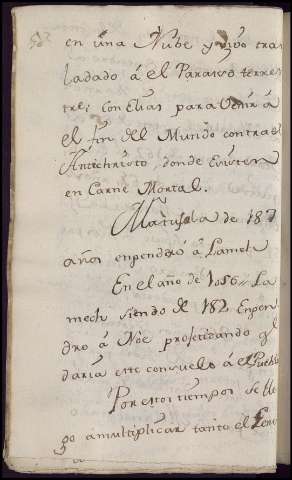 en una Nube y vivo tras
ladado á el Paraiso terres
tre; con Elias para venir á
el fin del Mundo contra el
Antichristo, donde existen
en Carne Mortal.
Matusala de 187
años enpendró á Lamech
En el año de 1056 La
mech siendo de 182 Enpen
dro á Noe profetizando q̃ l
daria este consuelo á el Pueblo
Por estos tiempos se lle
go a multiplicar tanto el Gene